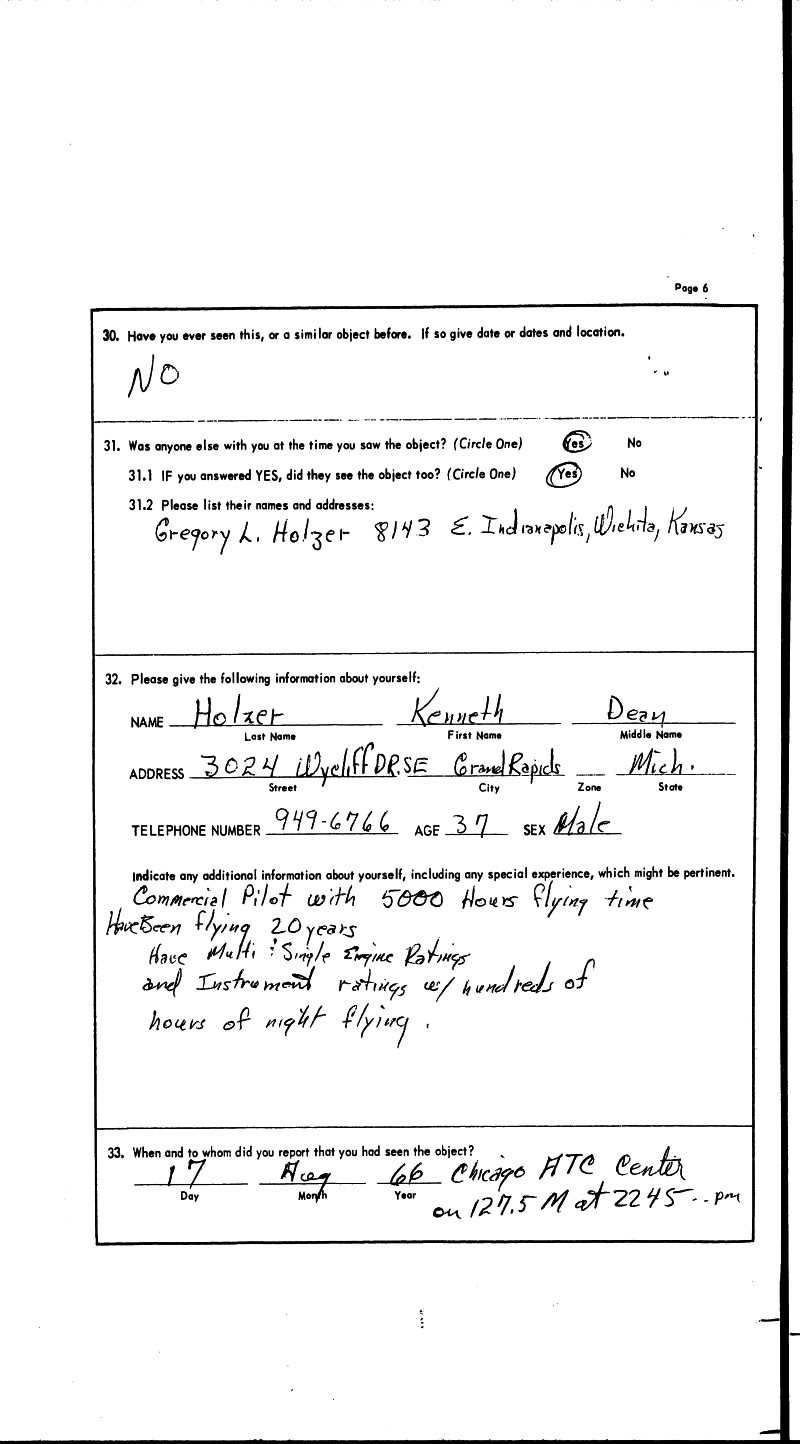 Page 6
30. Have you ever seen this, or a similar object before. If so give date or dates and location.
NO
31. Was anyone else with you at the time you saw the object? (Circle One) Yes No
31.1 IF you answered YES, did they see the object too? (Circle One) Yes No
31.2 Please list their names and addresses:
Gregory L. Holzer 8143 E. Indianapolis, Wichita, Kansas
32. Please give the following information about yourself:
NAME Holzer Kenneth Dean
Last Name First Name Middle Name
ADDRESS 3024 Wycliff DR. SE Grand Rapids Mich.
Street City Zone State
TELEPHONE NUMBER 949-6766 AGE 37 SEX Male
Indicate any additional information about yourself, including any special experience, which might be pertinent.
Commercial Pilot with 5000 Hours flying time
Have Been flying 20 years
Have Multi & Single Engine Ratings
and Instrument ratings w/ hundreds of
hours of night flying.
33. When and to whom did you report that you had seen the object?
17 Aug 66 Chicago ATC Center
Day Month Year
on 127.5 M at 2245 .. pm